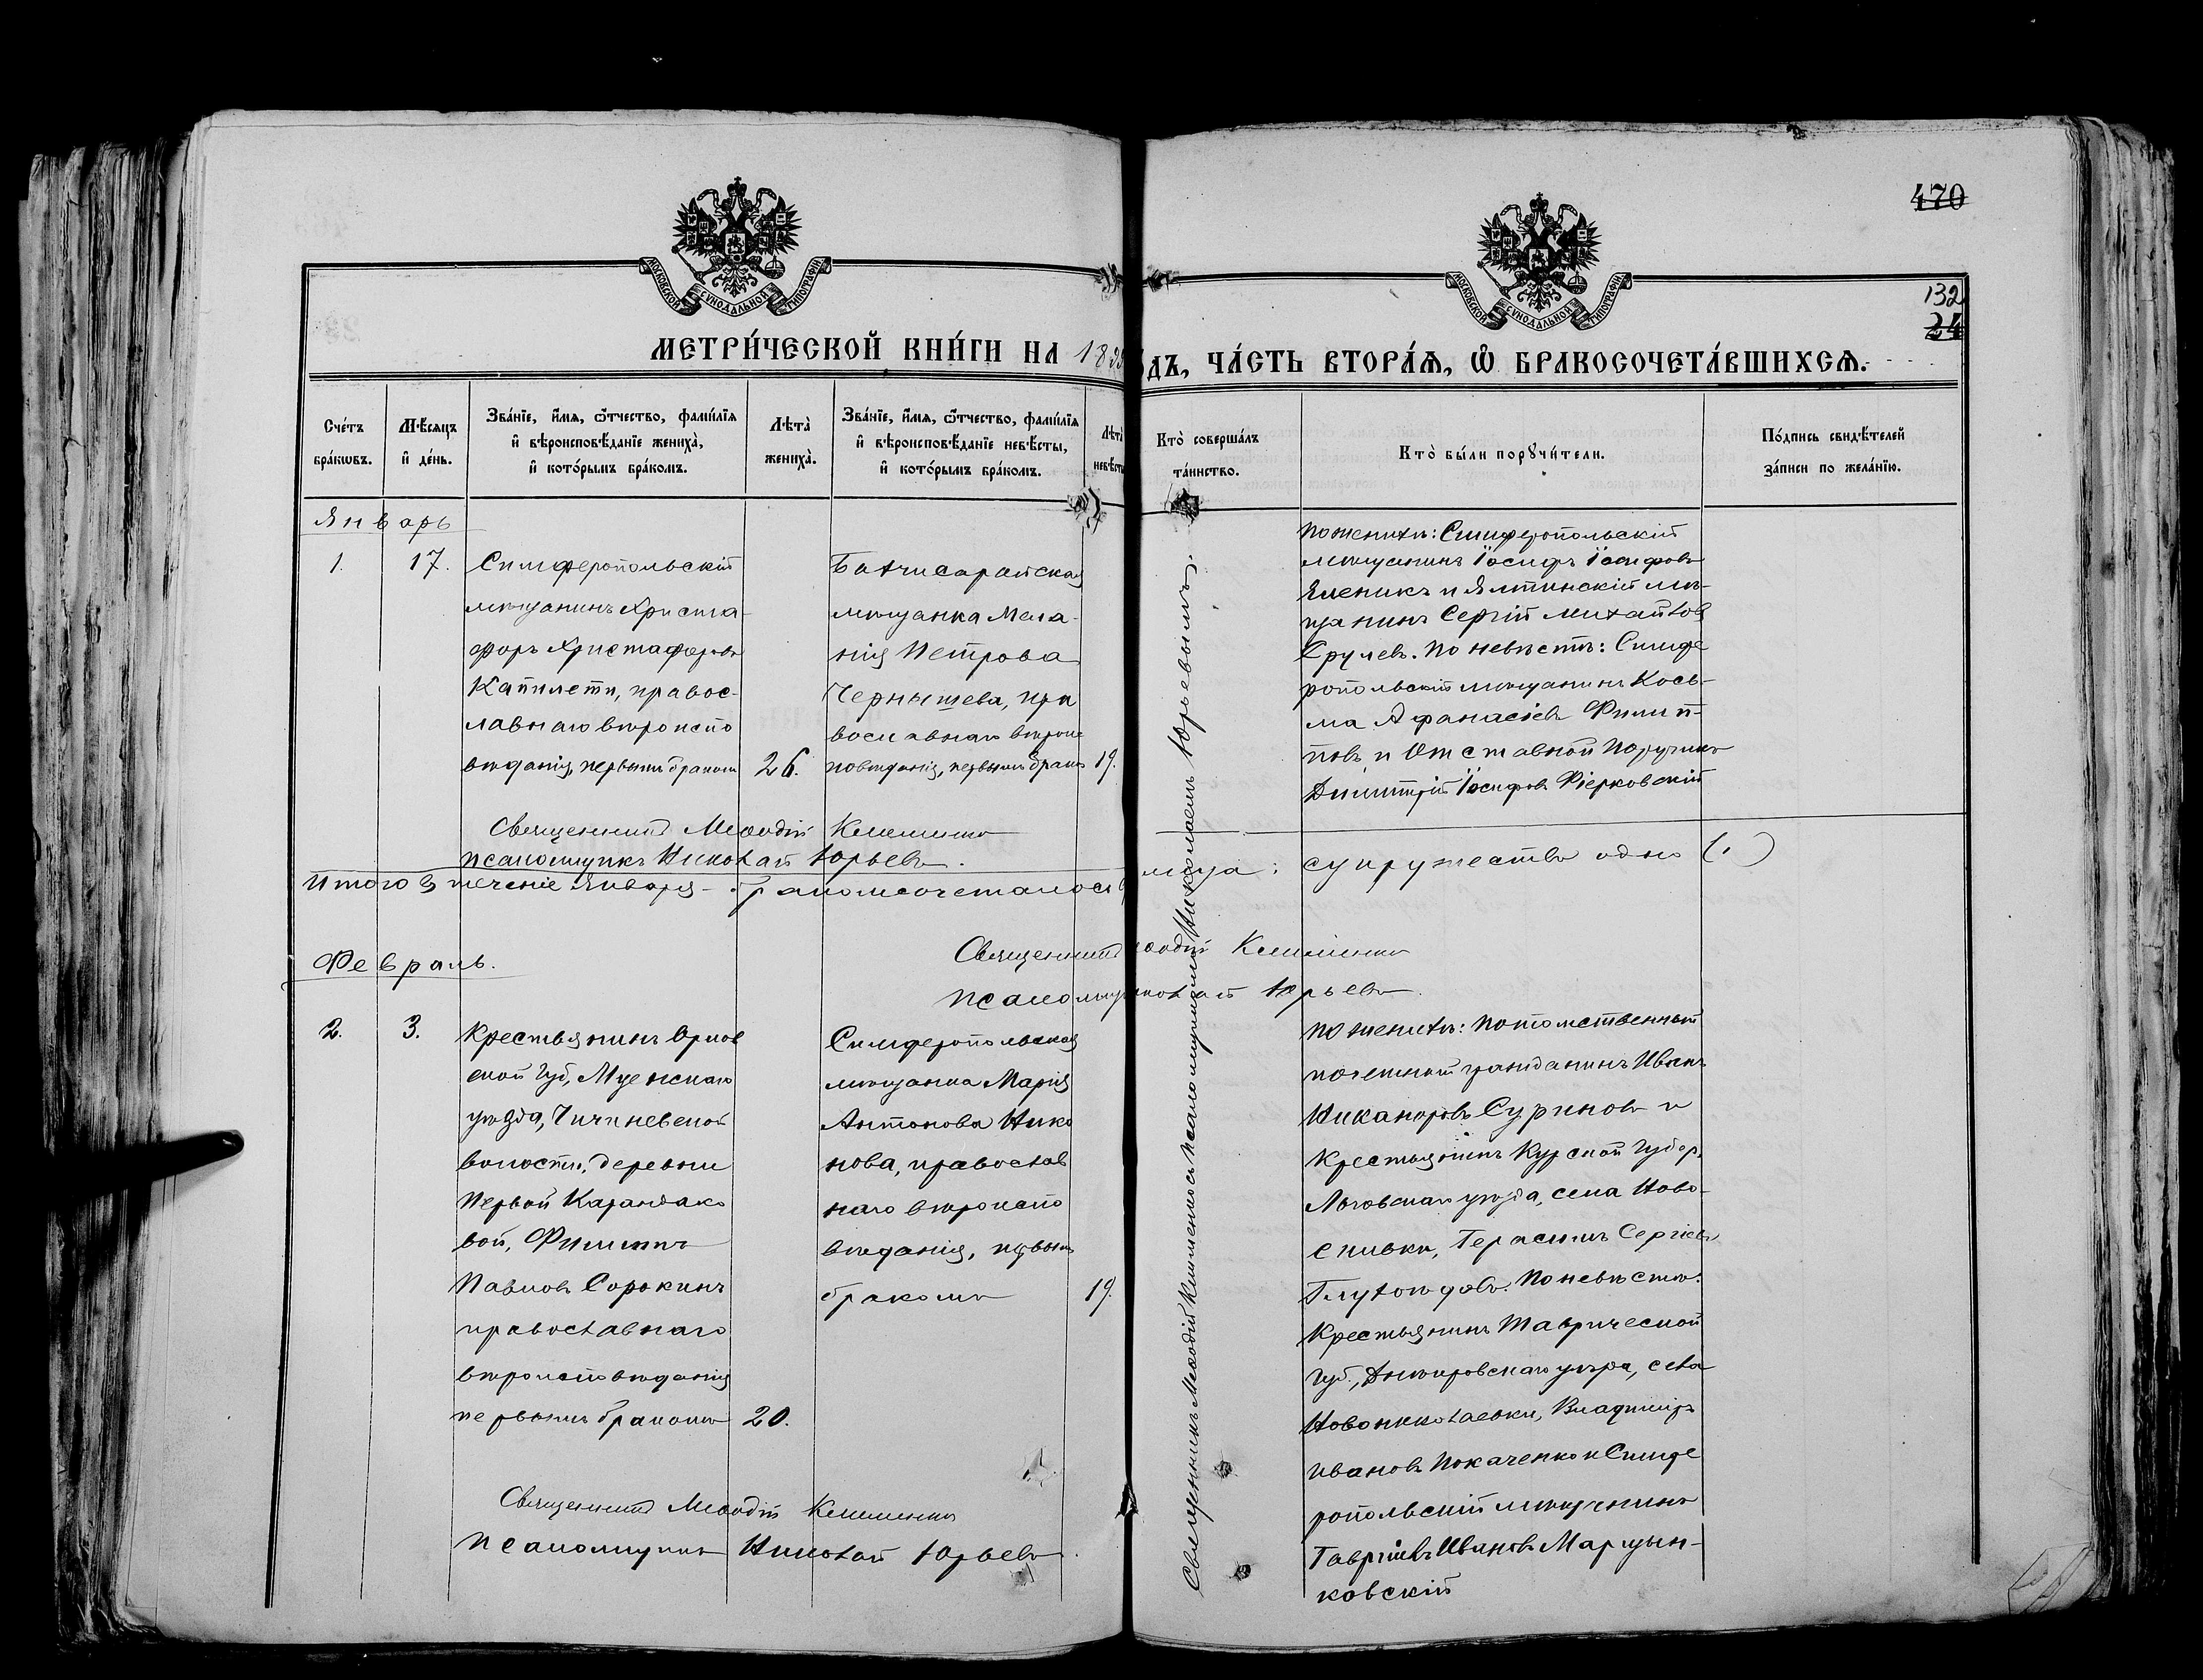 470
132
24
МОСКОВСКОЙ СѴНОДАЛЬНОЙ ТИПОГРАФІИ
МОСКОВСКОЙ СѴНОДАЛЬНОЙ ТИПОГРАФІИ
МЕТРИ́ЧЕСКОЙ КНИ́ГИ НА 189
ОДЪ, ЧА́СТЬ ВТОРА́Я, Ѽ БРАКОСОЧЕТА́ВШИХСЯ.
Сче́тъ бра́кѡвъ.
Мѣ́сяцъ и҆ де́нь.
Зва́нїе, и҆́мя, ѻ҆́тчество, фами́лїя
и҆ вѣроисповѣ́данїе жениха̀,
и҆ кото́рымъ бра́комъ.
Лѣта̀ жениха̀.
Зва́нїе, и҆́мя, ѻ҆́тчество, фами́лїя
и҆ вѣроисповѣ́данїе невѣ́сты,
и҆ кото́рымъ бра́комъ.
Лѣта̀ невѣ́сты
Кто̀ соверша́лъ
та́инство.
Кто̀ бы́ли порꙋчи́тели.
По́дпись свидѣ́телей
за́писи по жела́нїю.
Январь
1.
17.
Симферопольскій
мѣщанинъ Христа-
форъ Христафоровъ
Капилети, правос-
лавнаго вѣроиспо
вѣданія, первымъ бракомъ
26.
Бахчисарайская
мѣщанка Мела-
нія Петрова
Чернышева, пра
вославнаго вѣроис
повѣданія, первымъ брако
19.
по женихѣ: Симферопольскій
мѣщанинъ Іосифъ Іосифовъ
Яценикъ и Ялтинскій мѣ-
щанинъ Сергій Михайлов
Хрулевъ. По невѣстѣ: Симфе
ропольскій мѣщанинъ Кось-
ма Афанасіевъ Филип-
повъ и Отставной Поручикъ
Димитрій Іосифовъ Фіерковскій
Священникъ Меѳодій Клименко
псаломщикъ Николай Юрьевъ.
Итого въ теченіе Января бракомсочеталось
лица: супружество одно (1)
Священникъ Меѳодій Клименко
Псаломщикъ Николай Юрьевъ.
Февраль.
2.
3.
Крестьянинъ Орлов
ской губ, Мценскаго
уѣзда, Чичиневской
волости, деревни
Первой Карандако
вой, Филиппъ
Павловъ Сорокинъ
православнаго
вѣроисповѣданія
первымъ бракомъ
20.
Симферопольская
мѣщанка Марія
Антонова Нико
нова, православ
наго вѣроиспо
вѣданія, первымъ
бракомъ
19.
По женихѣ: потомственный
почетный гражданинъ Иванъ
Никаноровъ Суриновъ и
Крестьянинъ Курской губер.
Льговскаго уѣзда, села Ново-
спивки, Герасимъ Сергіевъ
Глухоидовъ. По невѣстѣ:
Крестьянинъ Таврической
губ., Днѣпровскаго уѣзда, села
Новониколаевки, Владиміръ
Ивановъ Покаченко и Симфе
ропольскій мѣщанинъ
Гавріилъ Ивановъ Марцын-
ковскій
Священникъ Меѳодій Клименко
Псаломщикъ Николай Юрьевъ.
Священникъ Меѳодій Клименко съ псаломщикомъ Николаемъ Юрьевымъ.